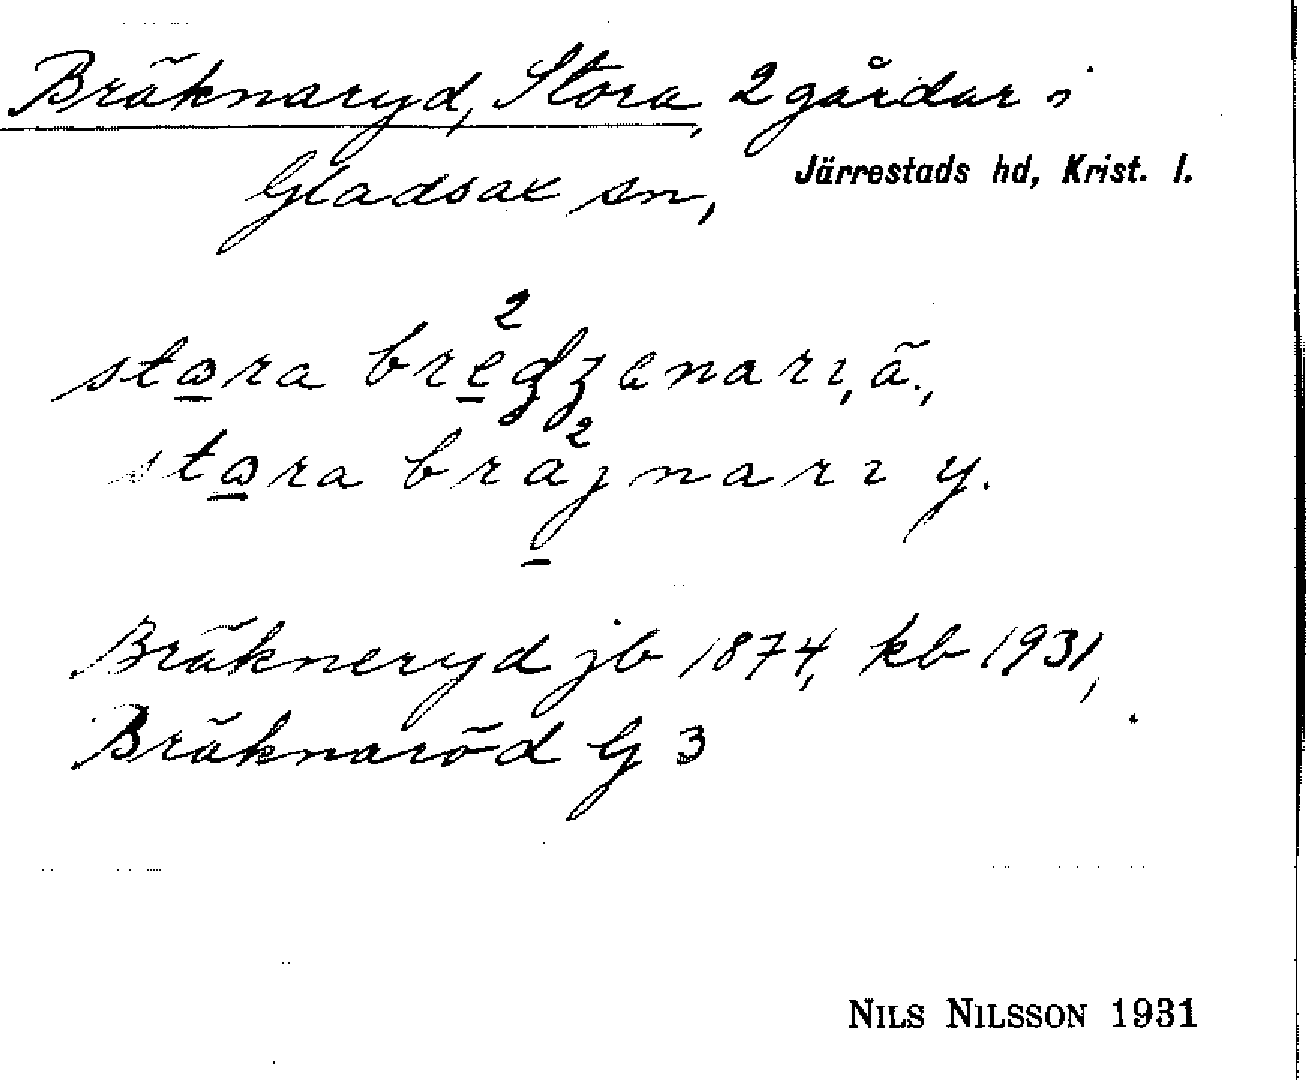 Bräknaryd, Stora, 2 gårdar i
Gladsax sn, Järrestads hd, Krist. l.
stora
stora brajnarı y.
Bräkneryd jb 1874, kb 1931,
Bräknaröd G 3
NILS NILSSON 1931